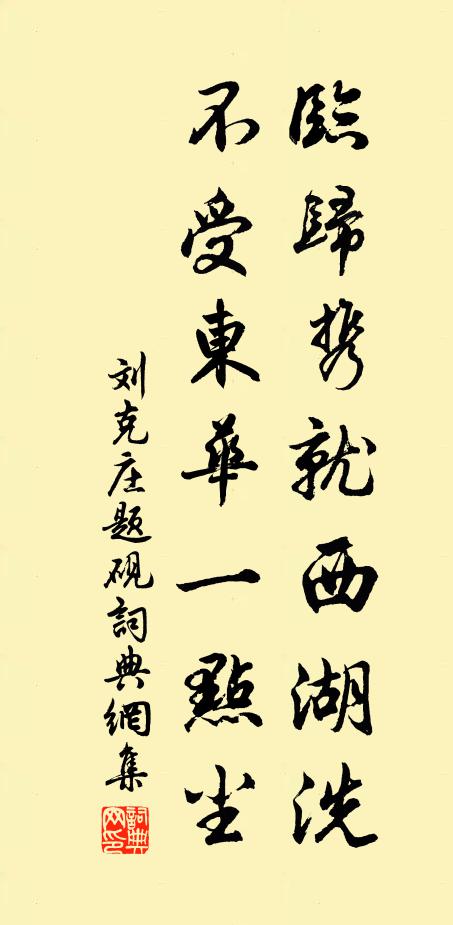 臨歸携就西湖洗
不受東華一點尘
刘克庄題硯詞典網集
詞典網印